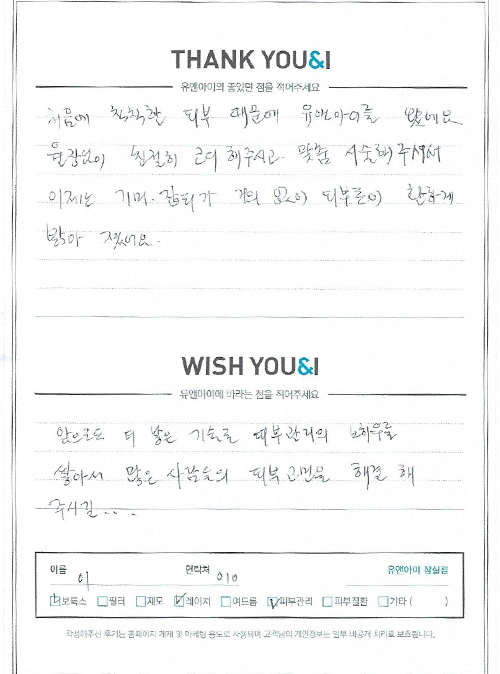 THANK YOU&I
유앤아이의 좋았던 점을 적어주세요
처음에 칙칙한 피부 때문에 유앤아이를 왔어요
원장님이 친절히 해주시고 맞춤 시술해주셔서
이제는 기미. 잡티가 거의 없이 피부톤이 환하게
밝아 졌어요.
WISH YOU&I
유앤아이에 바라는 점을 적어주세요
앞으로도 더 좋은 기술로 피부관리의 노하우를
쌓아서 많은 사람들의 피부고민을 해결 해
주시길....
이름 이 연락처 010 유앤아이 잠실점
보톡스 필러 제모 레이저 여드름 피부관리 피부질환 기타 ( )
작성해주신 후기는 홈페이지 게재 및 마케팅 용도로 사용되며 고객님의 개인정보는 일부 비공개 처리로 보호됩니다.